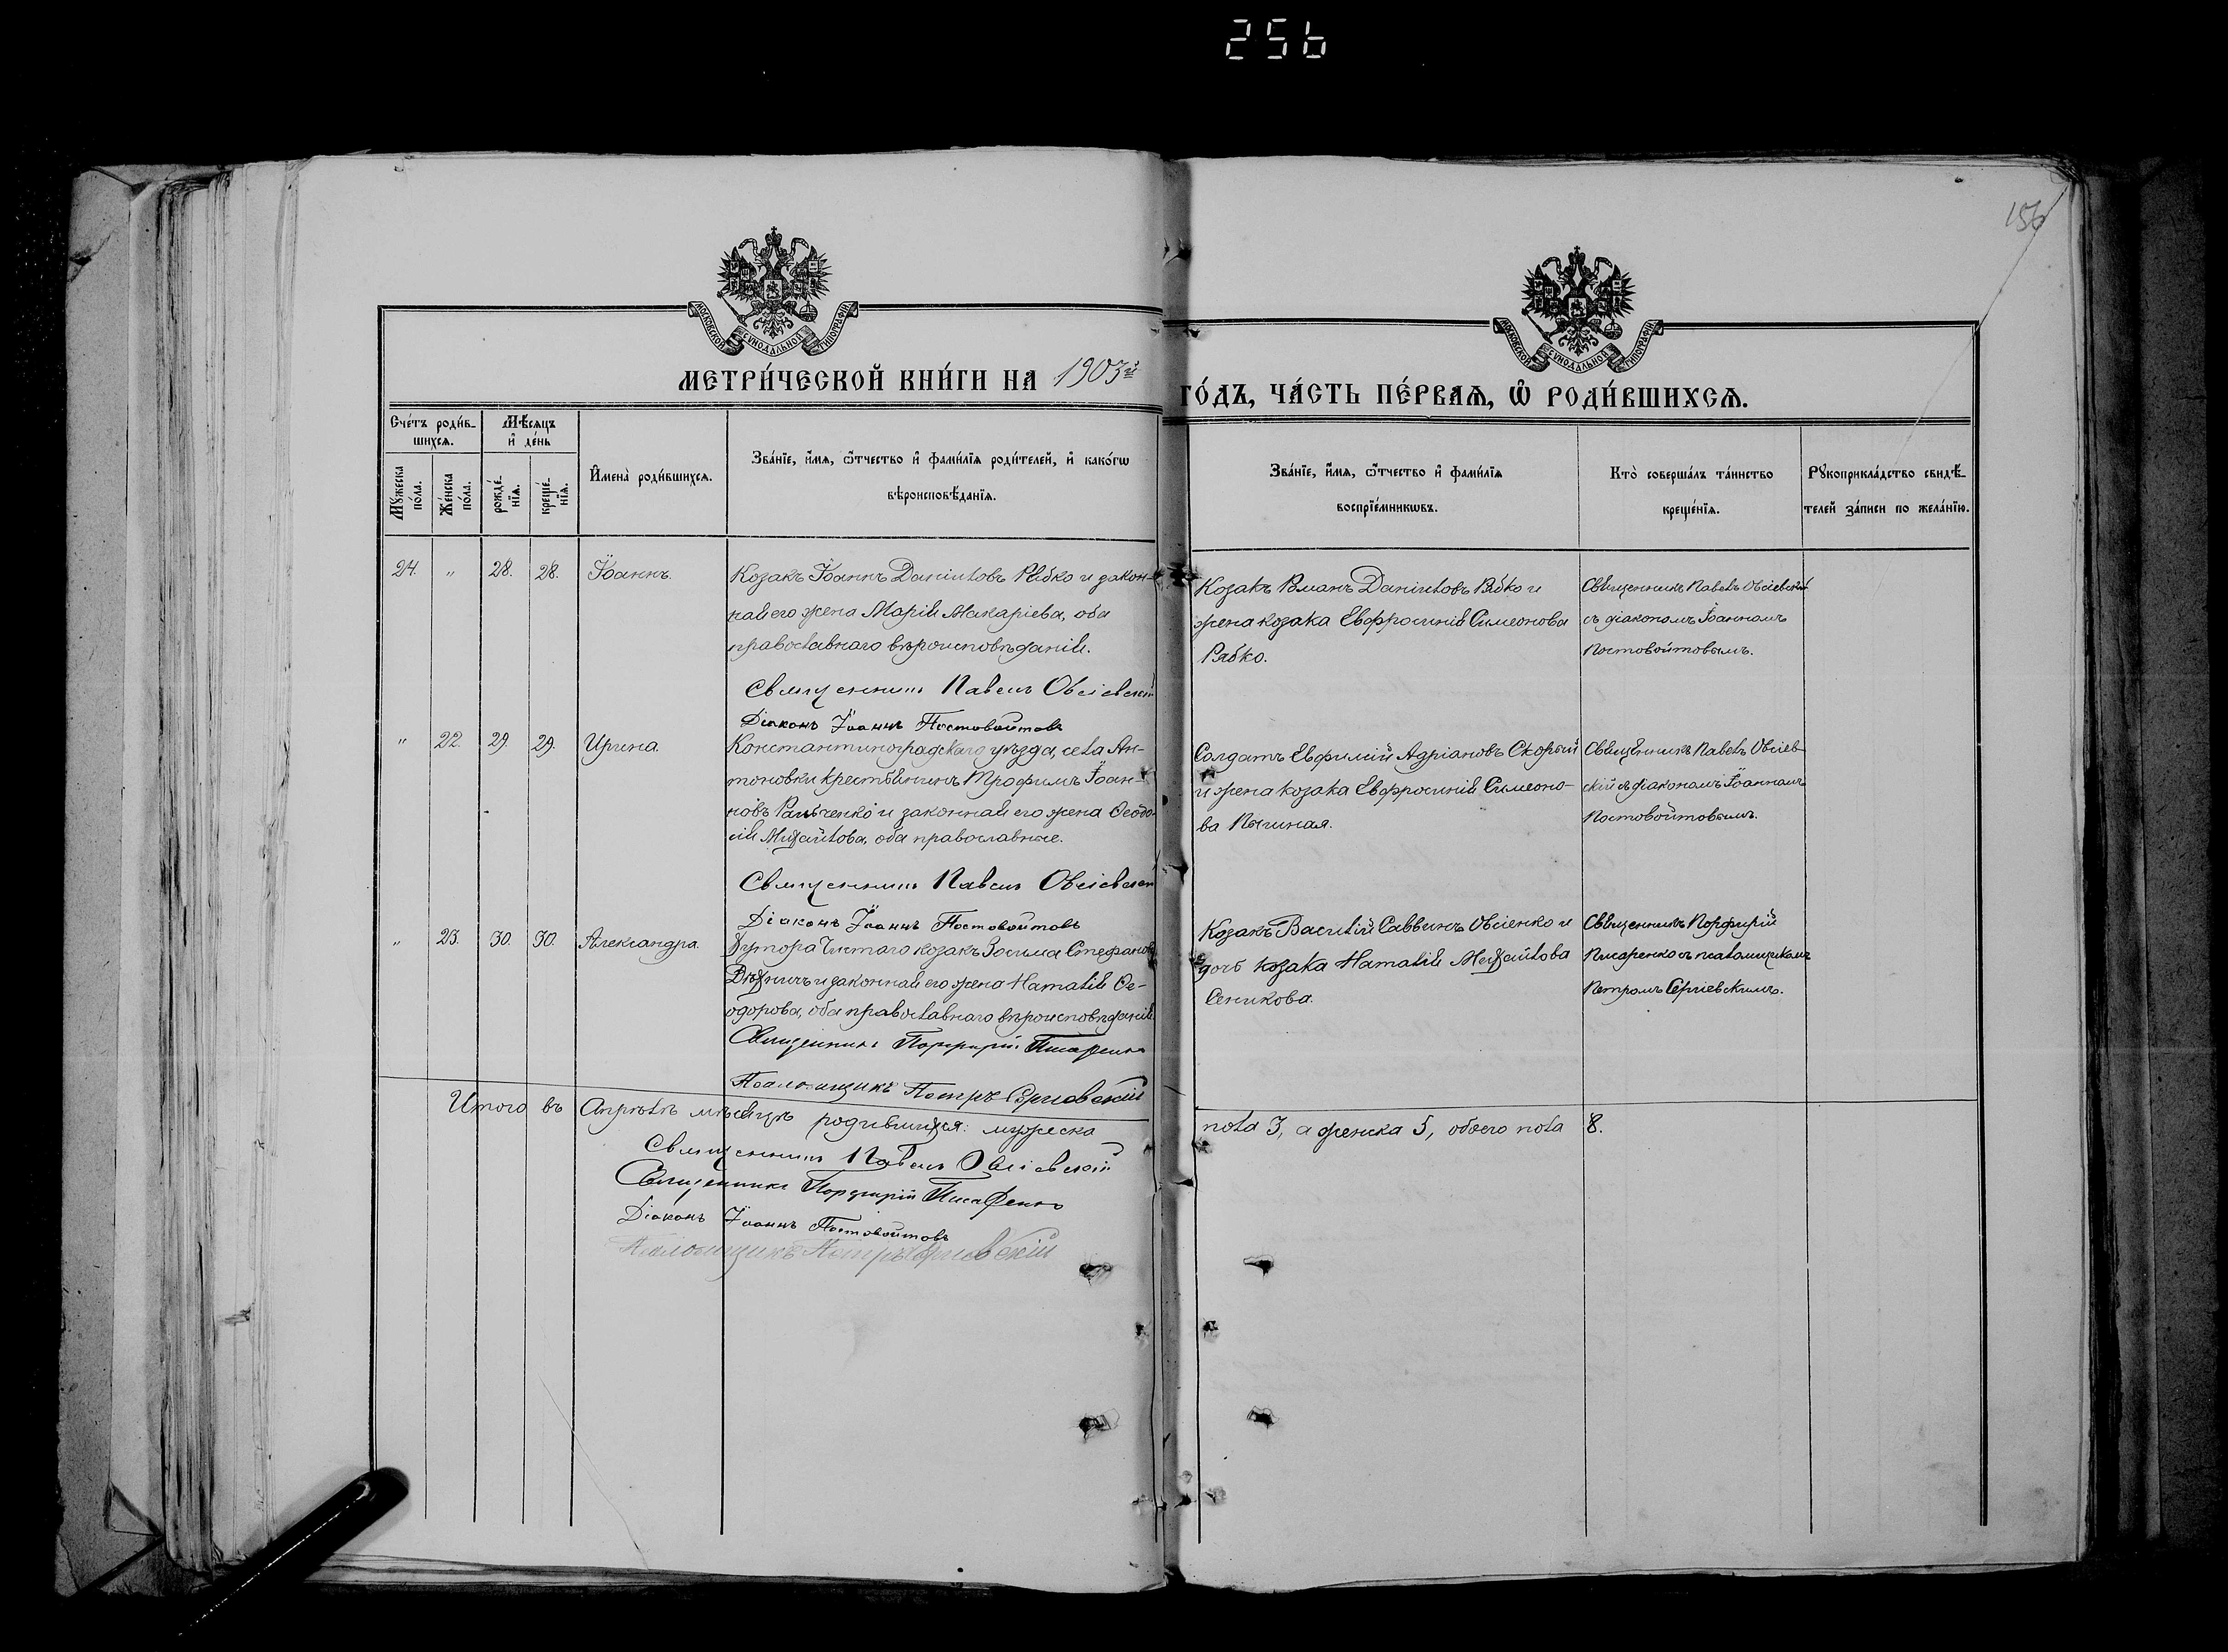 256
156
МОСКОВСКОЙ СѴНОДАЛЬНОЙ ТИПОГРАФІИ
МОСКОВСКОЙ СѴНОДАЛЬНОЙ ТИПОГРАФІИ
МЕТРИ́ЧЕСКОЙ КНИ́ГИ НА 1903й
ГО́ДЪ, ЧА́СТЬ ПЕ́РВАѦ, Ѡ҆ РОДИ́ВШИХСѦ.
Сче́тъ роди́в-
шихсѧ.
Мѣ́сѧцъ
и҆ де́нь
Мꙋ́жеска
по́ла.
Же́нска
по́ла.
рожде́-
нїѧ.
креще́-
нїѧ.
И҆мена̀ роди́вшихсѧ.
Зва́нїе, и҆́мѧ, ѻ҆́тчество и҆ фами́лїѧ роди́телей, и҆ како́гѡ
вѣроисповѣ́данїѧ.
Зва́нїе, и҆́мѧ, ѻ҆́тчество и҆ фами́лїѧ
воспрїе́мникѡвъ.
Кто̀ соверша́лъ та́инство
креще́нїѧ.
Рꙋкоприкла́дство свидѣ́-
телей за́писи по жела́нїю.
24. " 28. 28. Іоаннъ.
Козакъ Іоаннъ Даніиловъ Рябко и закон-
ная его жена Марія Макаріева, оба
православнаго вѣроисповѣданія.
Священникъ Павелъ Овсіевскій
Діаконъ Іоаннъ Постовойтовъ
Козакъ Романъ Даніиловъ Рябко и
жена козака Евфросинія Симеонова
Рябко.
Священникъ Павелъ Овсіевскій
съ діакономъ Іоанномъ
Постовойтовымъ.
" 22. 29. 29. Ирина.
Константиноградскаго уѣзда, села Ан-
тоновки крестьянинъ Трофимъ Іоан-
новъ Ральченко и законная его жена Ѳеодо-
сія Михайлова, оба православные.
Священникъ Павелъ Овсіевскій
Діаконъ Іоаннъ Постовойтовъ
Солдатъ Евфимій Адріановъ Скорый
и жена козака Евфросинія Симеоно-
ва
Священникъ Павелъ Овсіев-
скій съ діакономъ Іоанномъ
Постовойтовымъ.
" 23. 30. 30. Александра.
Хутора Чистаго козакъ Зосима Стефановъ
и законная его жена Наталія Ѳе-
одорова, оба православнаго вѣроисповѣданія.
Священникъ Порфирій Писаренко
Псаломщикъ Петръ Сергіевскій
Козакъ Василій Саввинъ Овсіенко и
дочь козака Наталія Михайлова
Сеникова.
Священникъ Порфирій
Писаренко съ псаломщикомъ
Петромъ Сергіевскимъ.
Итого въ Апрѣлѣ мѣсяцѣ родившихся: мужеска
пола 3, а женска 5, обоего пола 8.
Священникъ Павелъ Овсіевскій
Священникъ Порфирій Писаренко
Діаконъ Іоаннъ Постовойтовъ
Псаломщикъ Петръ Сергіевскій